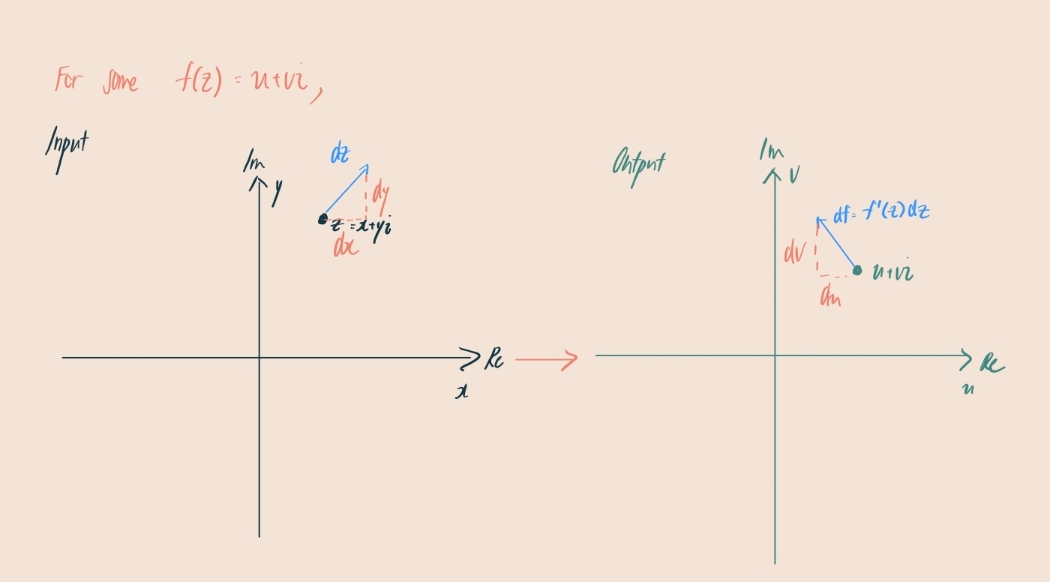 For some f(z) = u+vi,
Input
Im
y
dz
dy
z = x+yi
dx
Re
x
Output
Im
v
df = f'(z)dz
dv
u+vi
du
Re
u